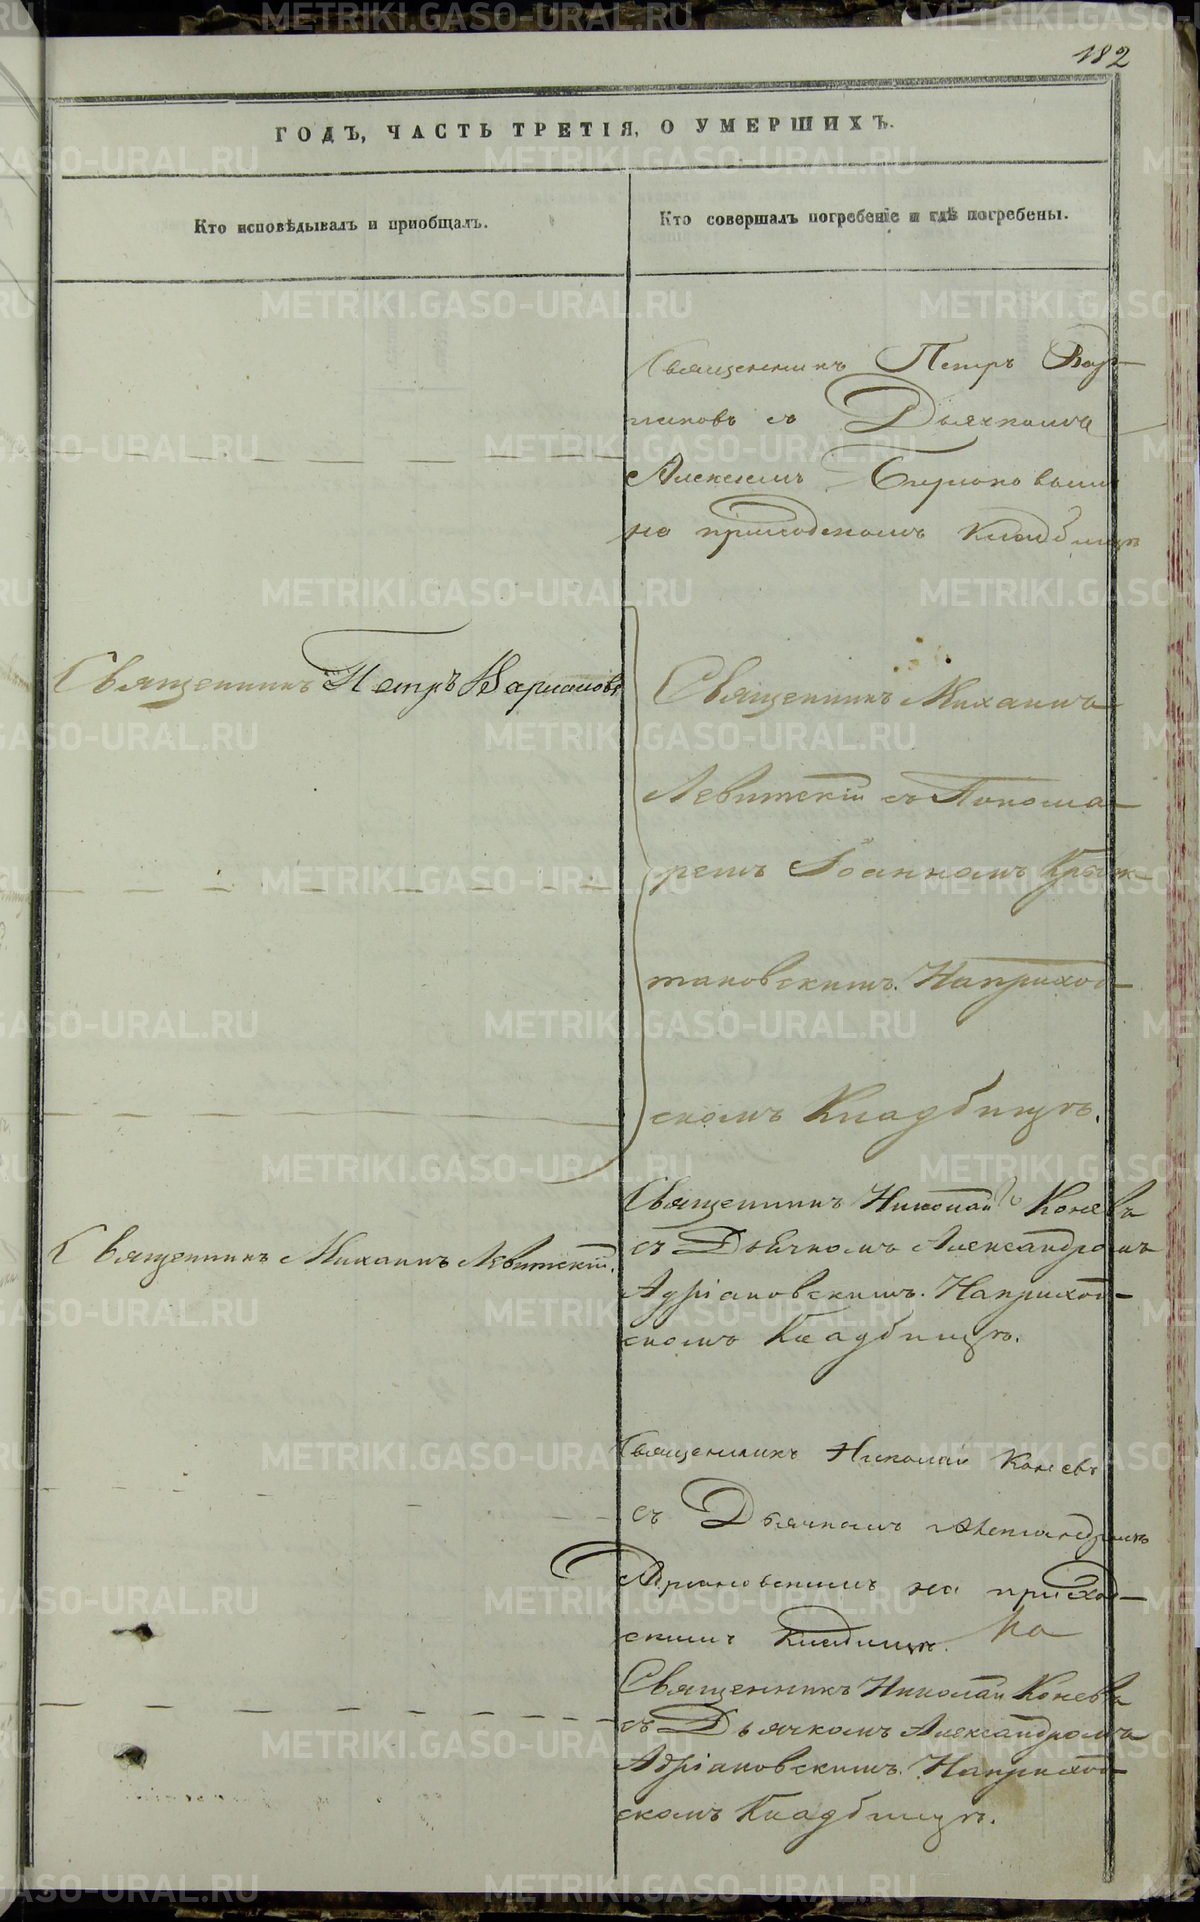 182
ГОДЪ, ЧАСТЬ ТРЕТІЯ, О УМЕРШИХЪ.
Кто исповѣдывалъ и пріобщалъ.
Кто совершалъ погребеніе и гдѣ погребены.
Священникъ Петръ Вар-
лаковъ съ Дьячкомъ
Алексѣемъ
на приходскомъ кладбищѣ
Священникъ Петръ Варлаковъ
Священникъ Михаилъ
Левитскій съ Понома-
ремъ Іоанномъ Крыж-
тановскимъ. На приход-
скомъ Кладбищѣ.
Священникъ Михаилъ Левитскій.
Священникъ Николай Коневъ
съ Дьячкомъ Александромъ
Адріановскимъ. На приход-
скомъ Кладбищѣ.
Священникъ Николай Коневъ
съ Дьячкомъ Александромъ
Адріановскимъ на приход-
скимъ кладбищѣ. На
Священникъ Николай Коневъ
съ Дьячкомъ Александромъ
Адріановскимъ. На приход-
скомъ Кладбищѣ.
METRIKI.GASO-URAL.RU